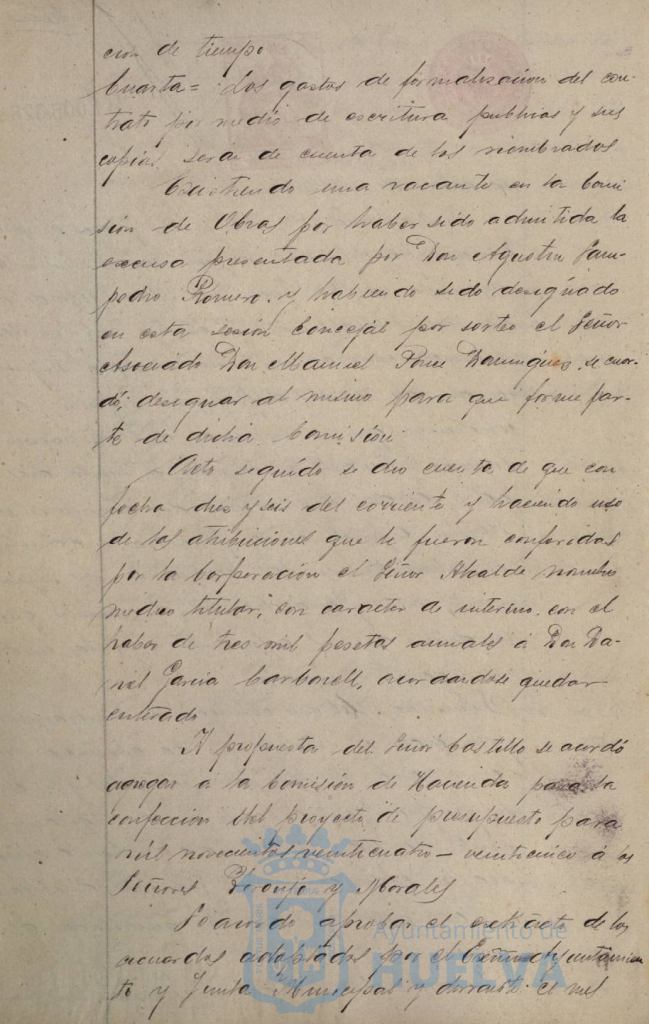 cion de tiempo
Cuarta= Los gastos de formalizacion del con-
trato por medio de escritura publicas y sus
copias seran de cuenta de los nombrados
Existiendo una vacante en la Comi
sión de Obras por haber sido admitida la
excusa presentada por Don Agustin Sam-
pedro Romero, y habiendo sido designado
en esta sesión Concejal por sorteo el Señor
Asociado Don Manuel Ponce Dominguez, se acor-
dó, designar al mismo para que forme par-
te de dicha Comisión
Acto seguido se dio cuenta de que con
fecha diez y seis del corriente y haciendo uso
de las atribuciones que le fueron conferidas
por la Corporación el Señor Alcalde nombró
medico titular, con caracter de interino, con el
haber de tres mil pesetas anuales á Don Da-
niel Garcia Carbonell, acordandose quedar
enterado
A propuesta del Señor Castillo se acordó
agregar á la Comisión de Hacienda para la
confección del proyecto de presupuesto para
mil novecientos veinticuatro - veinticinco á los
Señores y Morales
Se acordó aprobar el extracto de los
acuerdos adoptados por el Excmo. Ayuntamien
to y Junta Municipal y durante el mes
Ayuntamiento de
HUELVA